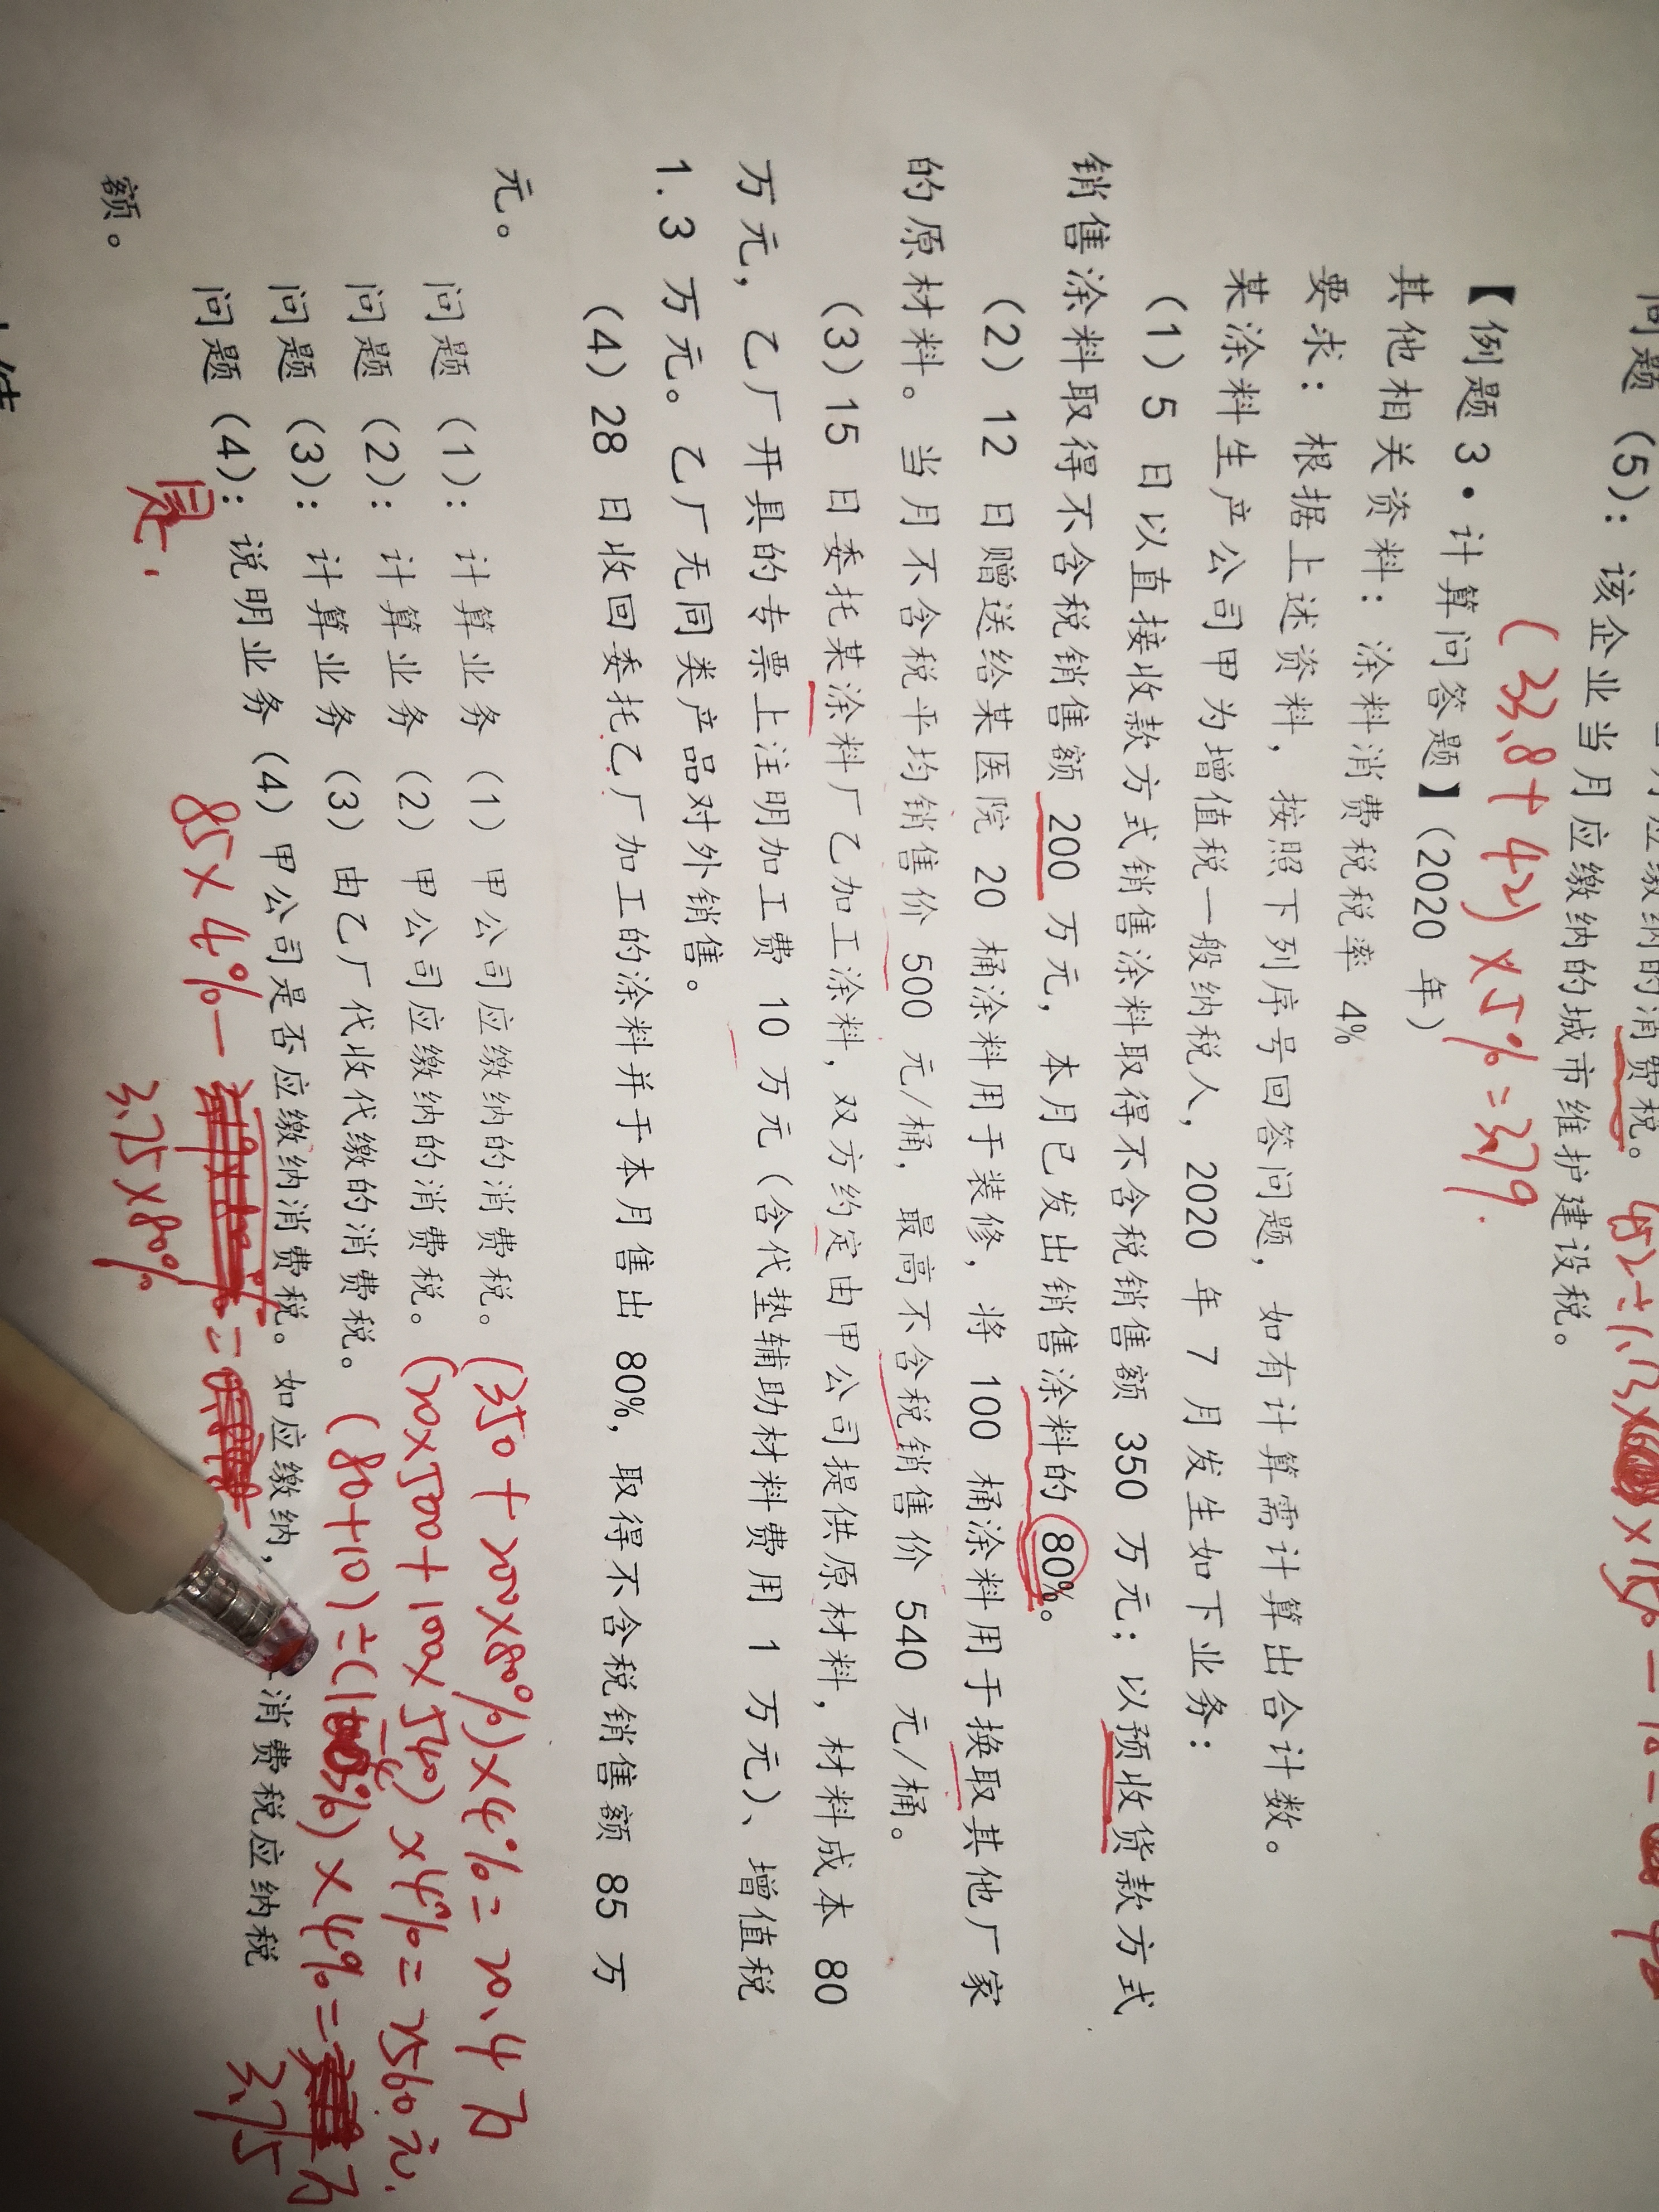 问题(5):该企业当月应缴纳的城市维护建设税。
(33.8+42)×5%=3.79.
【例题3·计算问答题】(2020 年)
其他相关资料:涂料消费税税率 4%
要求:根据上述资料,按照下列序号回答问题,如有计算需计算出合计数。
某涂料生产公司甲为增值税一般纳税人,2020 年 7 月发生如下业务:
(1)5 日以直接收款方式销售涂料取得不含税销售额 350 万元;以预收货款方式
销售涂料取得不含税销售额 200 万元,本月已发出销售涂料的 80%。
(2)12 日赠送给某医院 20 桶涂料用于装修,将 100 桶涂料用于换取其他厂家
的原材料。当月不含税平均销售价 500 元/桶,最高不含税销售价 540 元/桶。
(3)15 日委托某涂料厂乙加工涂料,双方约定由甲公司提供原材料,材料成本 80
万元,乙厂开具的专票上注明加工费 10 万元(含代垫辅助材料费用 1 万元)、增值税
1.3 万元。乙厂无同类产品对外销售。
(4)28 日收回委托乙厂加工的涂料并于本月售出 80%,取得不含税销售额 85 万
元。
问题(1):计算业务(1)甲公司应缴纳的消费税。(350+200×80%)×4%=20.4万
问题(2):计算业务(2)甲公司应缴纳的消费税。(20×500+100×540)×4%=2560元.
问题(3):计算业务(3)由乙厂代收代缴的消费税。(80+10)÷(1-4%)×4%=万
3.75
问题(4):说明业务(4)甲公司是否应缴纳消费税。如应缴纳,消费税应纳税
是. 85×4%- =
3.75×80%
额。